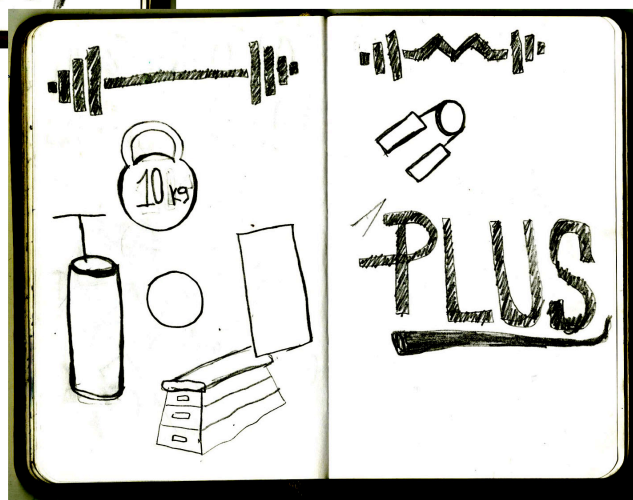 10 kg
PLUS